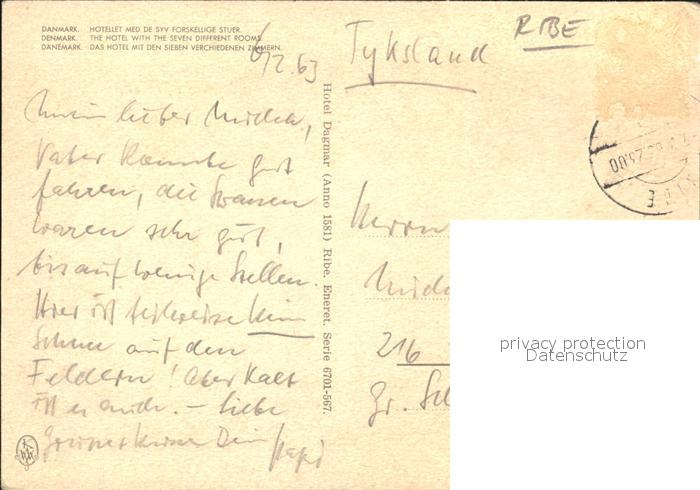 DANMARK. HOTELLET MED DE SYV FORSKELLIGE STUER.
DENMARK. THE HOTEL WITH THE SEVEN DIFFERENT ROOMS.
DÄNEMARK. DAS HOTEL MIT DEN SIEBEN VERCHIEDENEN ZIMMERN.
2.63
Mein lieber Micha,
Vater konnte gut
fahren, die Strassen
waren sehr gut,
bis auf wenige Stellen.
Hier ist teilweise kein
Schnee auf den
Feldern! Aber kalt
ist es auch. – Liebe
Dein Papi
Hotel Dagmar (Anno 1581) Ribe. Eneret. Serie 6701-567.
Tyksland
RIBE
Herrn
216
Gr.
privacy protection
Datenschutz